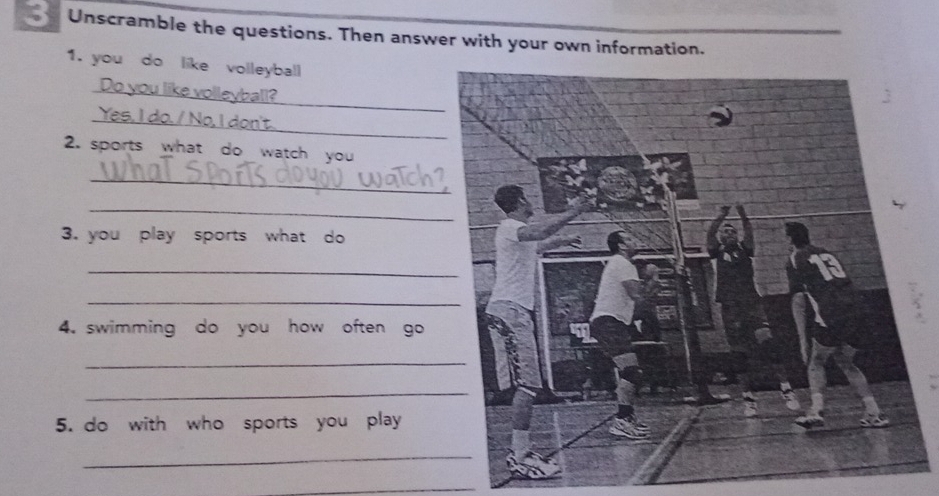 3 Unscramble the questions. Then answer with your own information.
1. you do like volleyball
Do you like volleyball?
Yes, I do. / No, I don't.
2. sports what do watch you
What sports do you watch?
3. you play sports what do
4. swimming do you how often go
5. do with who sports you play
13